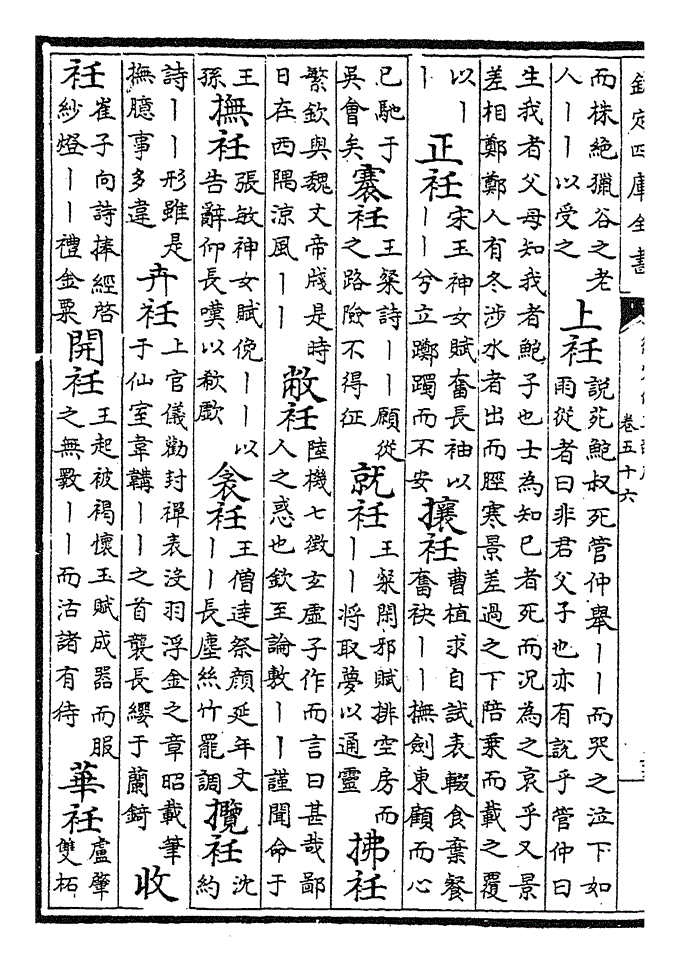 欽定四庫全書
卷五十六
而株絕獵谷之老
人丨丨以受之
上衽
說苑鮑叔死管仲舉丨丨而哭之泣下如
雨從者曰非君父子也亦有說乎管仲曰
生我者父母知我者鮑子也士為知己者死而況為之哀乎又景
差相鄭鄭人有冬涉水者出而脛寒景差過之下陪乘而載之覆
以丨
丨
正衽
宋玉神女賦奮長袖以
丨丨兮立躑躅而不安
攘衽
曹植求自試表輟食棄餐
奮袂丨丨撫劍東顧而心
已馳于
吳會矣
褰衽
王粲詩丨丨顧從
之路險不得征
就衽
王粲閑邪賦排空房而
丨丨將取夢以通靈
拂衽
繁欽與魏文帝牋是時
日在西隅涼風丨丨
敞衽
陸機七徵玄虛子作而言曰甚哉鄙
人之惑也欽至論敷丨丨謹聞命于
王
孫
撫衽
張敏神女賦俛丨丨以
告辭仰長嘆以欷歔
衾衽
王僧達祭顏延年文
丨丨長塵絲竹罷調
攬衽
沈
約
詩丨丨形雖是
撫臆事多違
卉衽
上官儀勸封禪表沒羽浮金之章昭載筆
于仙室韋韝丨丨之首襲長纓于蘭錡
收
衽
崔子向詩捧經啓
紗燈丨丨禮金粟
開衽
王起被褐懷玉賦成器而服
之無斁丨丨而沽諸有待
華衽
盧肇
雙柘